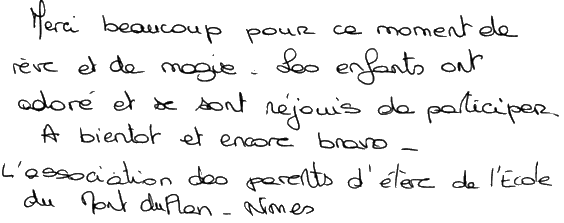 Merci beaucoup pour ce moment de
rêve et de magie. Les enfants ont
adoré et se sont réjouis de participer.
A bientot et encore bravo -
L'association des parents d'élève de l'Ecole
du Mont duPlan - Nîmes